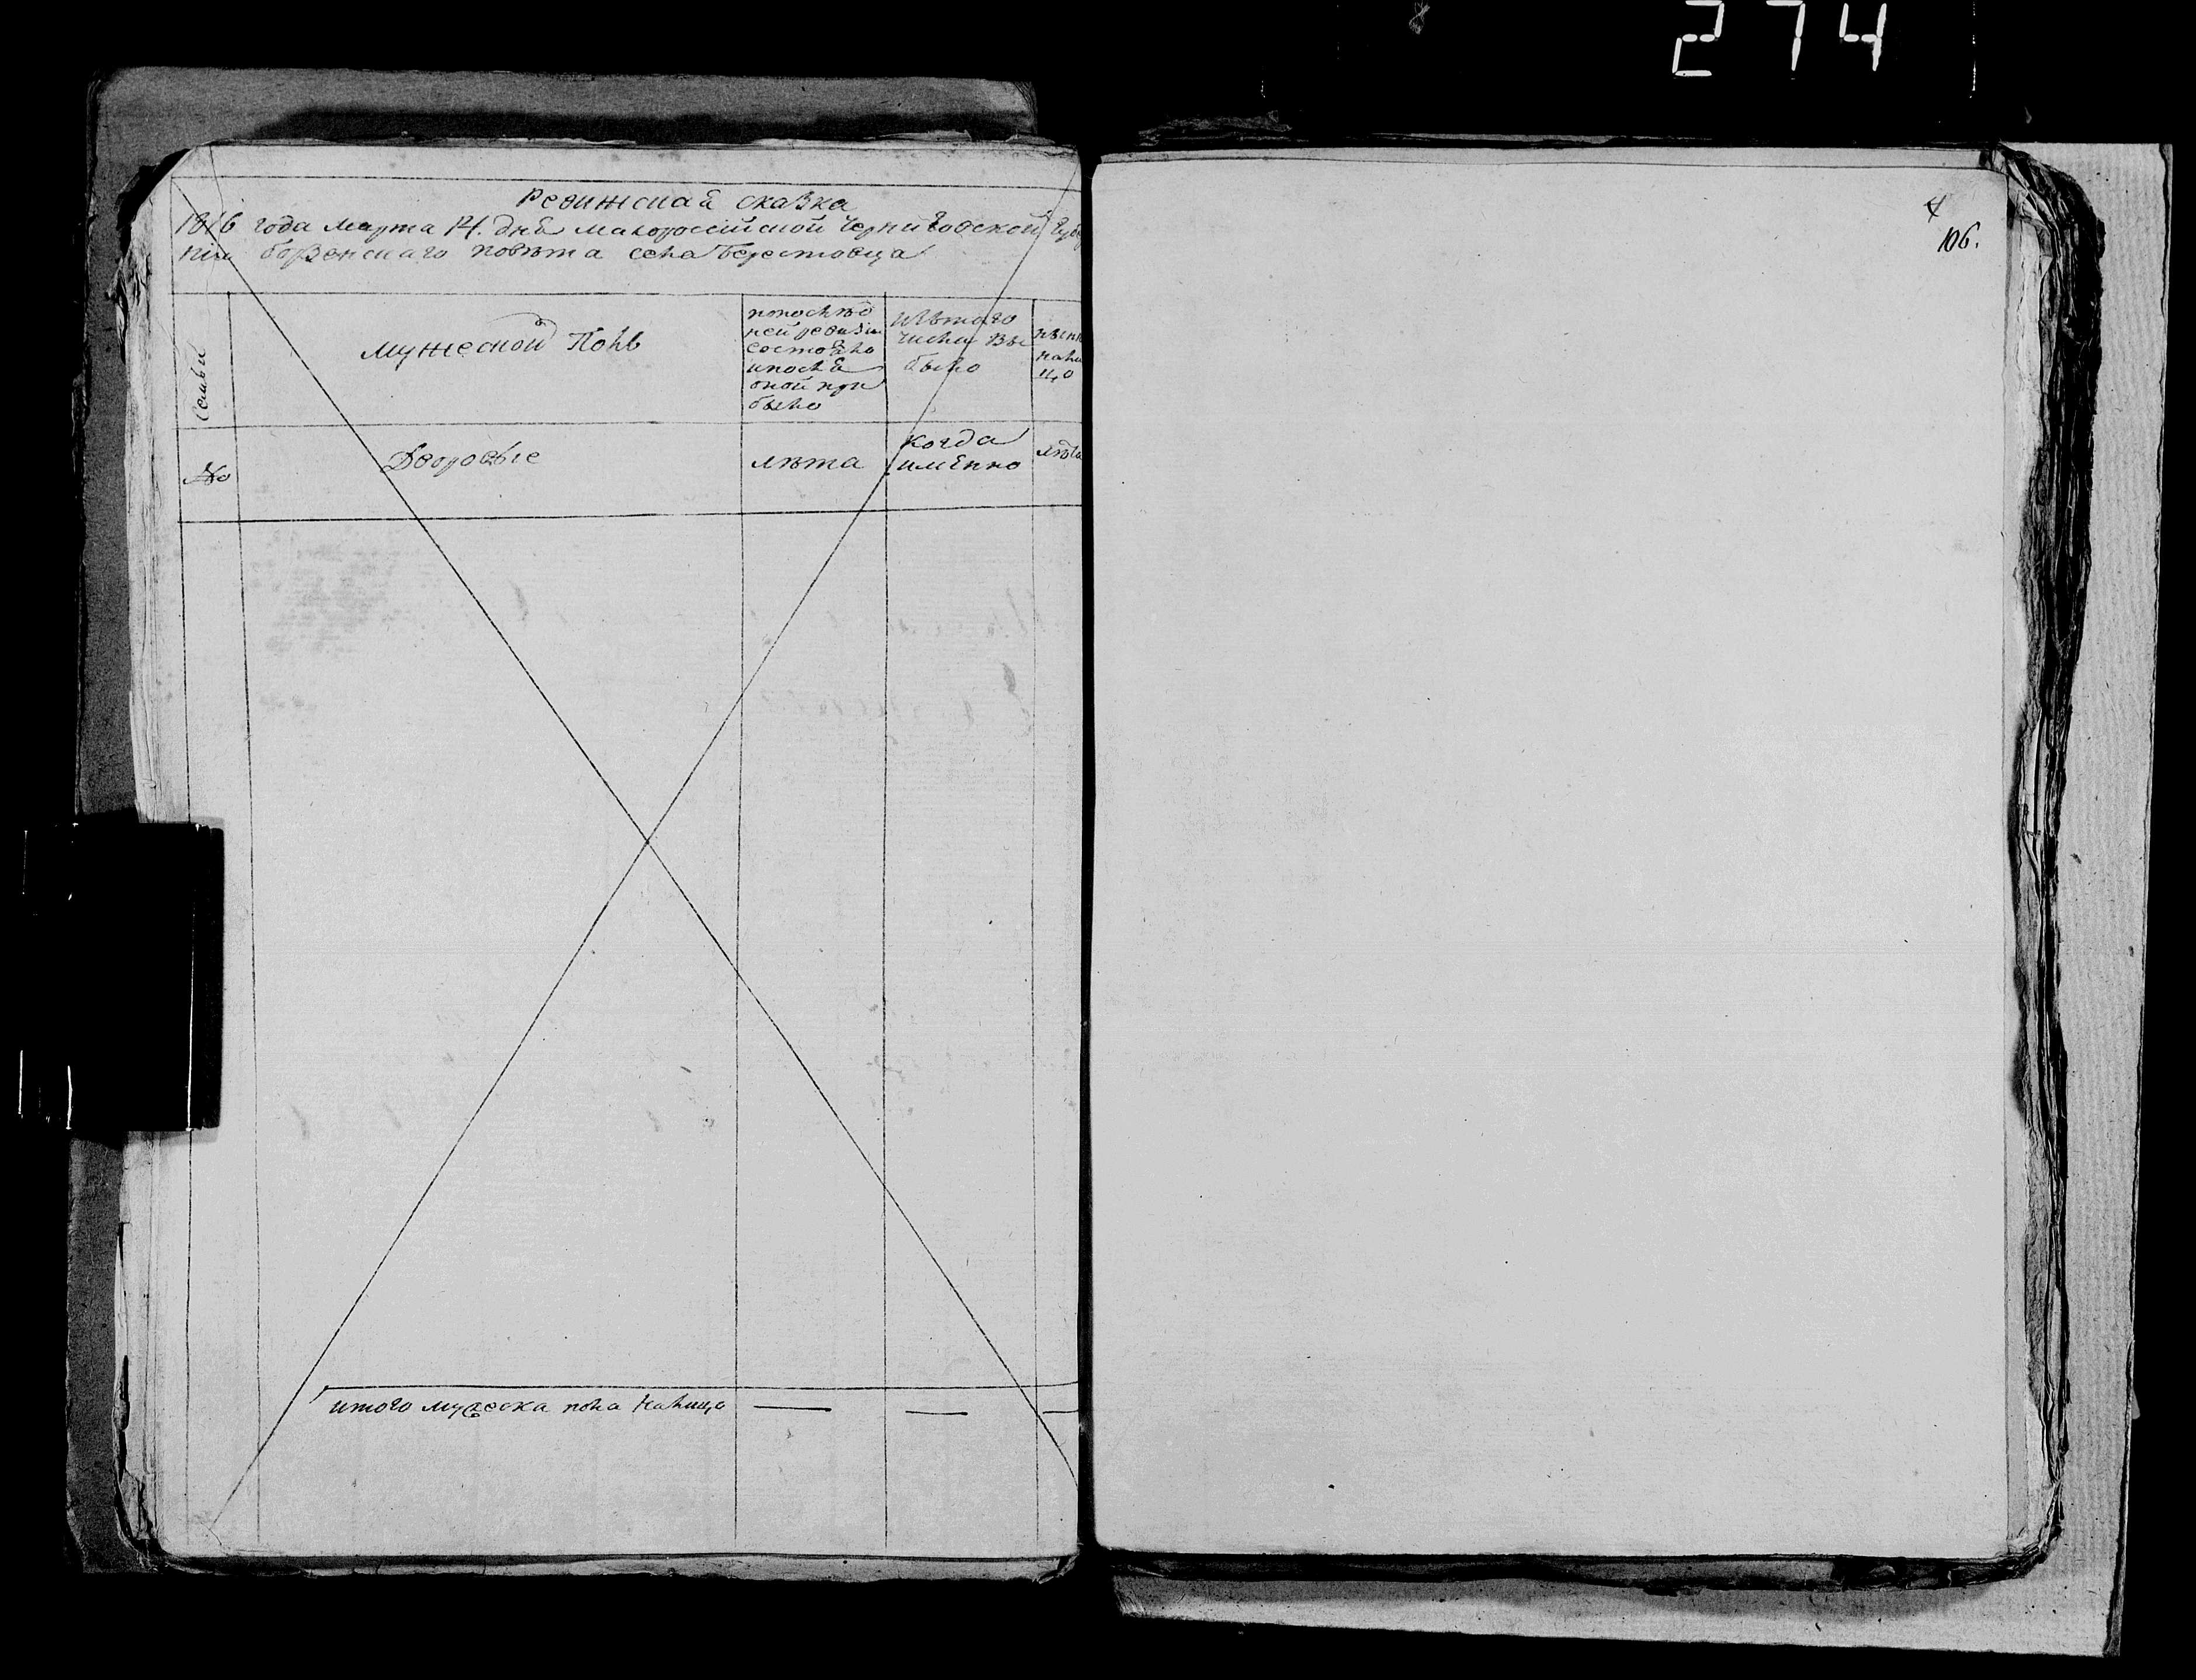 274
Ревижская сказка
1816 года Марта 14. дня Малороссійской Черниговской Губе
ніи борзенскаго повѣта села Берестовца
Семьи
Мужеской Полъ
попослѣд
ней ревизіи
состояло
ипослѣ
оной при
было
Изътого
числа Вы
было
нынѣ
нали
цо
№
Дворовые
лѣта
когда
имѣнно
лѣта
итого мужеска пола налицо — — —
4
106.